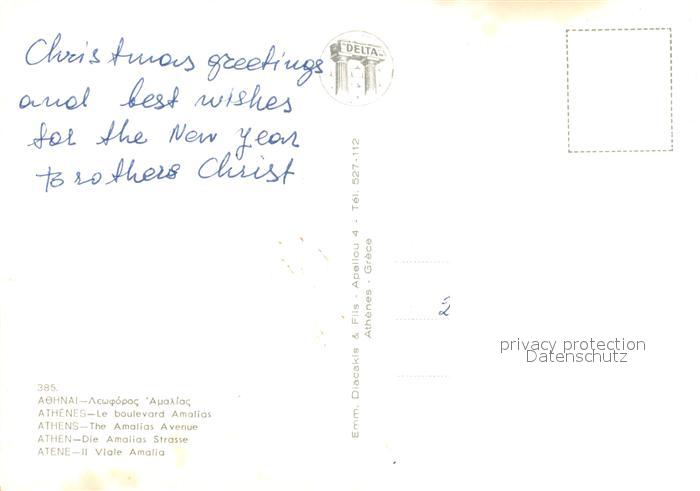 Christmas greetings
and best wishes
for the New Year
Brothers Christ
DELTA
Emm. Diacakis & Fils - Apellou 4 - Tél. 527-112
Athènes - Grèce
2
privacy protection
Datenschutz
385.
ΑΘΗΝΑΙ—Λεωφόρος Ἀμαλίας
ATHÈNES—Le boulevard Amalias
ATHENS—The Amalias Avenue
ATHEN—Die Amalias Strasse
ATENE—Il Viale Amalia